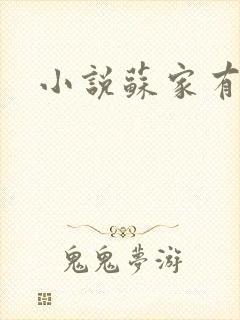 小說蘇家有
鬼鬼夢游